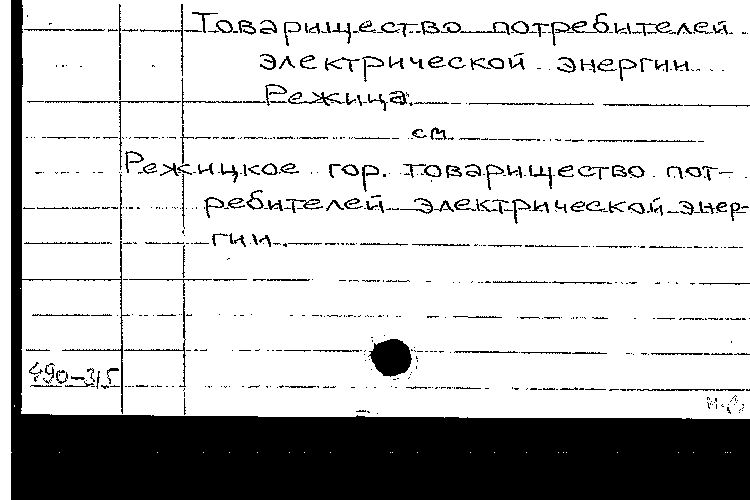 Товарищество потребителей
электрической энергии
Режица.
см
Режицкое гор. товарищество пот-
ребителей электрической энер-
гии.
490-315